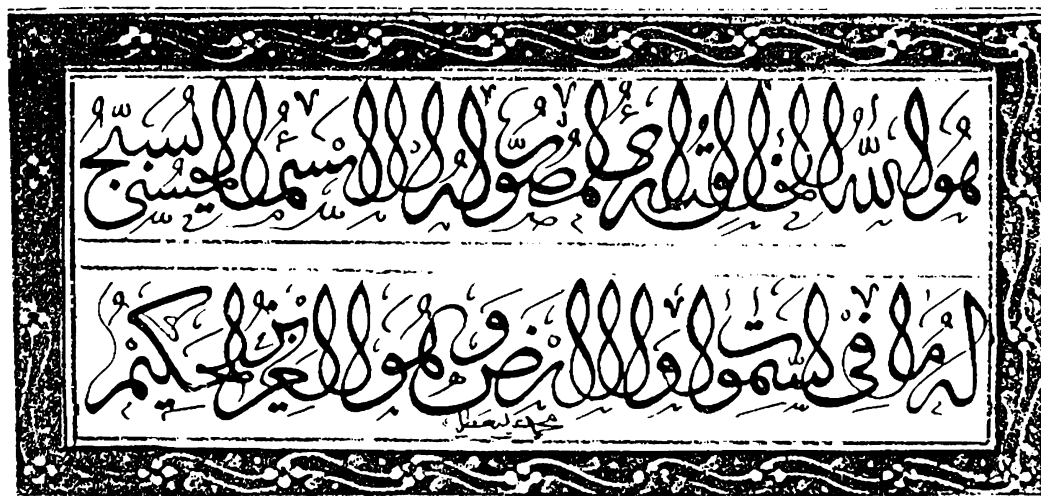 هو الله الخالق البارئ المصور له الأسماء الحسنى يسبح
له ما في السموات والأرض وهو العزيز الحكيم